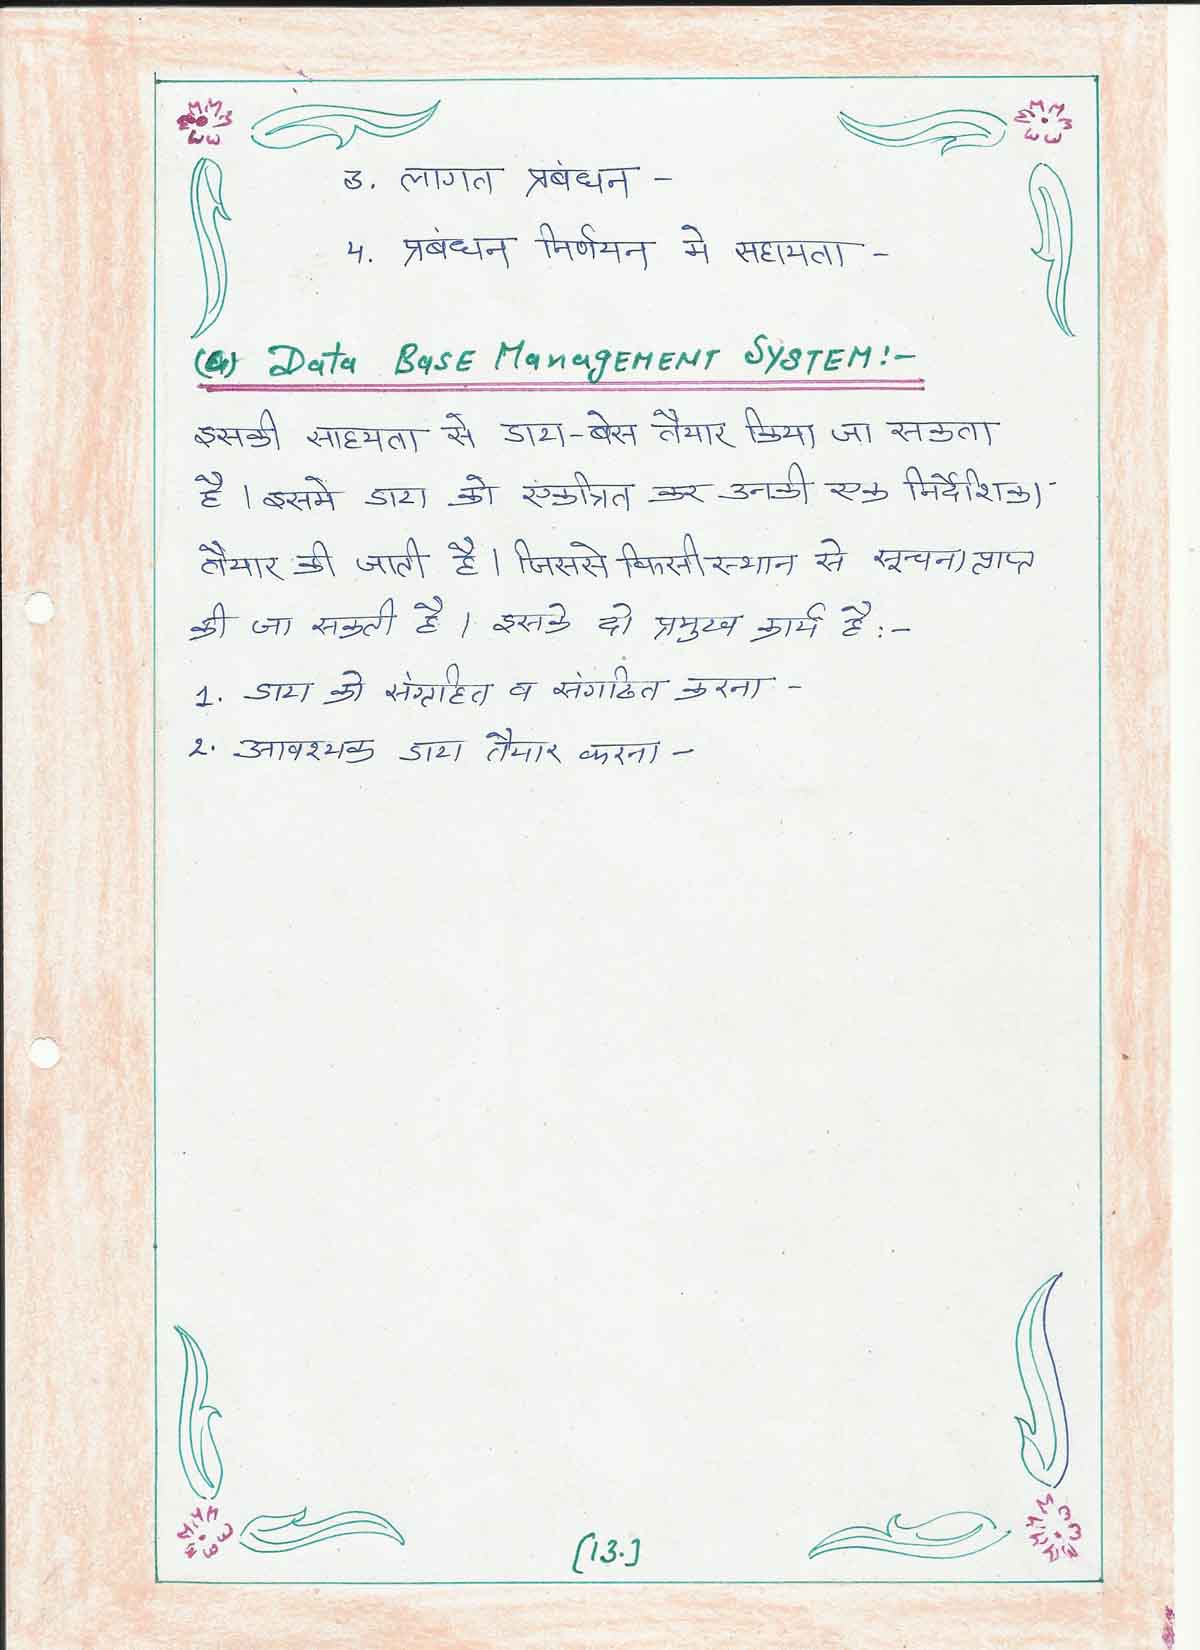 3. लागत प्रबंधन -
4. प्रबंधन निर्णयन मे सहायता -
(a) Data Base Management System:-
इसकी साहयता से डाटा-बेस तैयार किया जा सकता
है। इसमें डाटा को एंकत्रित कर उनकी एक निर्देशिका
तैयार की जाती है। जिससे किसी स्थान से सूचना प्राप्त
की जा सकती है। इसके दो प्रमुख कार्य है:-
1. डाटा को संग्रहित व संगठित करना -
2. आवश्यक डाटा तैयार करना -
[13.]